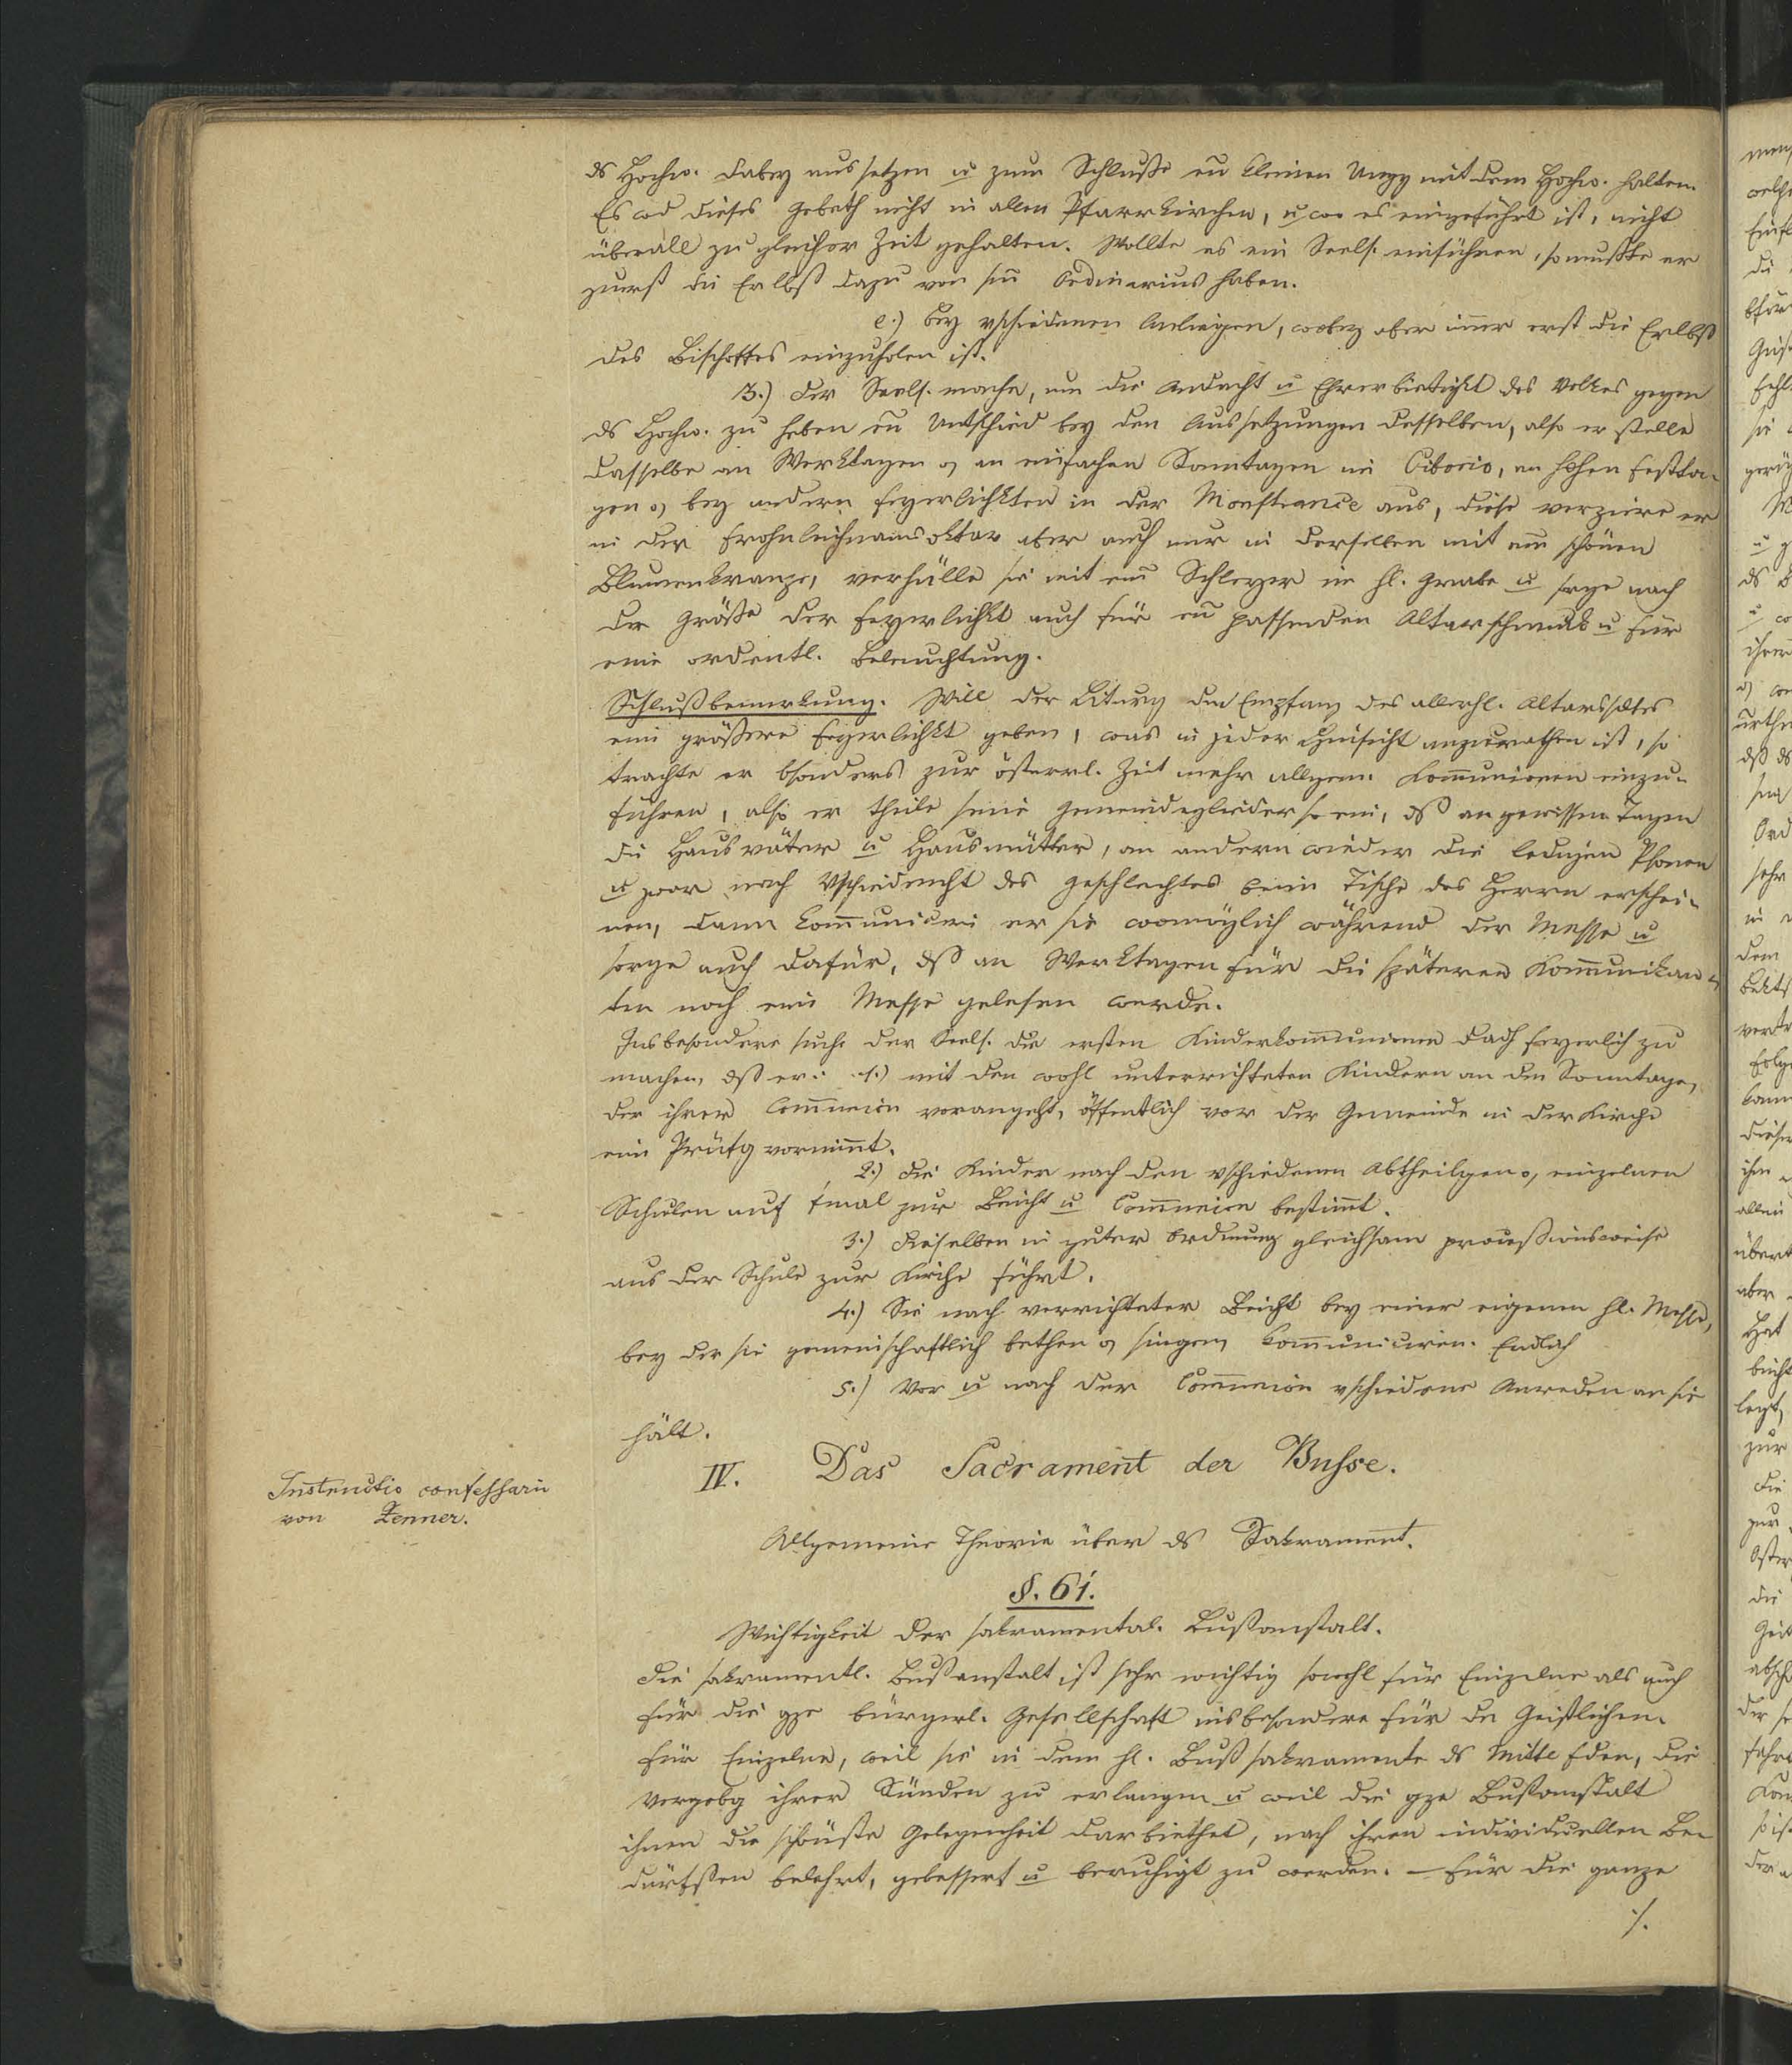 ds Hochw. dabey aussetzen u zum Schluße en kleinen Umgg mit dem Hochw. halten.
Es wd dieses Gebeth nicht in allen Pfarrkirchen, u wo es eingeführt ist, nicht
überall zu gleicher Zeit gehalten. Wollte es ein Seels. einführen, so mußte er
zuerst die Erlbß dazu von sm Ordinarius haben.
e.) bey vschiedenen Anliegen, wobey aber imer erst die Erlbß
des Bischoffes einzuholen ist.
3.) Der Seels. mache, um die Andacht u Ehrerbietigkt des Volkes gegen
ds Hochw. zu heben en Untschied bey den Aussetzungen desselben, also er stelle
dasselbe an Werktagen o, an einfachen Sonntagen im Ciborio, an hohen Festta-
gen o, bey andern Feyerlichkten in der Monstrance aus, diese verziere er
in der Frohnleichnamsoktav aber auch nur in derselben mit em schönen
Blumenkranze, verhülle sie mit em Schleyer im hl. Grabe u sorge nach
der Größe der Feyerlichkt auch für en passenden Altarschmuck u für
eine ordentl. Beleuchtung.
Schlußbemerkung. Will der Liturg den Empfang des allerhl. Altarssctes
eine größere Feyerlichkt geben, was in jeder Hinsicht anzurathen ist, so
trachte er bsonders zur österrl. Zeit mehr allgem. Kommunionen einzu-
führen, also er theile seine Gemeindeglieder so ein, dß an gewissen Tagen
die Hausväter u Hausmütter, an andern wieder die ledigen Psonen
u zwar nach Vschiedenht des Geschlechtes beim Tische des Herrn erschei-
nen, dann kommunicire er sie womöglich während der Messe u
sorge auch dafür, dß an Werktagen für die späteren Kommunikan-
ten noch eine Messe gelesen werde.
Insbesondere suche der Seels. die ersten Kinderkommunionen dadh feyerlich zu
machen, dß er: 1.) mit den wohl unterrichteten Kindern an dem Sonntage,
der ihrer Commnion vorangeht, öffentlich vor der Gemeinde in der Kirche
eine Prüfg vornimmt.
2.) Die Kinder nach den vschiedenen Abtheilgen o, einzelnen
Schulen auf 1mal zur Beicht u Commnion bestimmt.
3.) Dieselben in guter Ordnung gleichsam proceßionsweise
aus der Schule zur Kirche führt.
4.) Sie nach verrichteter Beicht bey einer eigenen hl. Messe,
bey der sie gemeinschaftlich bethen o, singen, kommuniciren. Endlich
5.) Vor u nach der Commnion vschiedene Anreden an sie
hält.
IV. Das Sacrament der Busse.
Instructio confessarii
von Zenner.
Allgemeine Theorie über ds Sakrament.
§. 61.
Wichtigkeit der sakramental. Bußanstalt.
Die sakramentl. Bußanstalt ist sehr wichtig sowohl für Einzelne als auch
für die gze bürgerl. Gesellschaft insbesondere für den Geistlichen.
Für Einzelne, weil sie in dem hl. Bußsakramente ds Mittel fden, die
Vergebg ihrer Sünden zu erlangen u weil die gze Bußanstalt
ihnen die schönste Gelegenheit darbiethet, nach ihren individuellen Be-
dürfßen belehrt, gebessert u beruhigt zu werden. – Für die ganze
./.